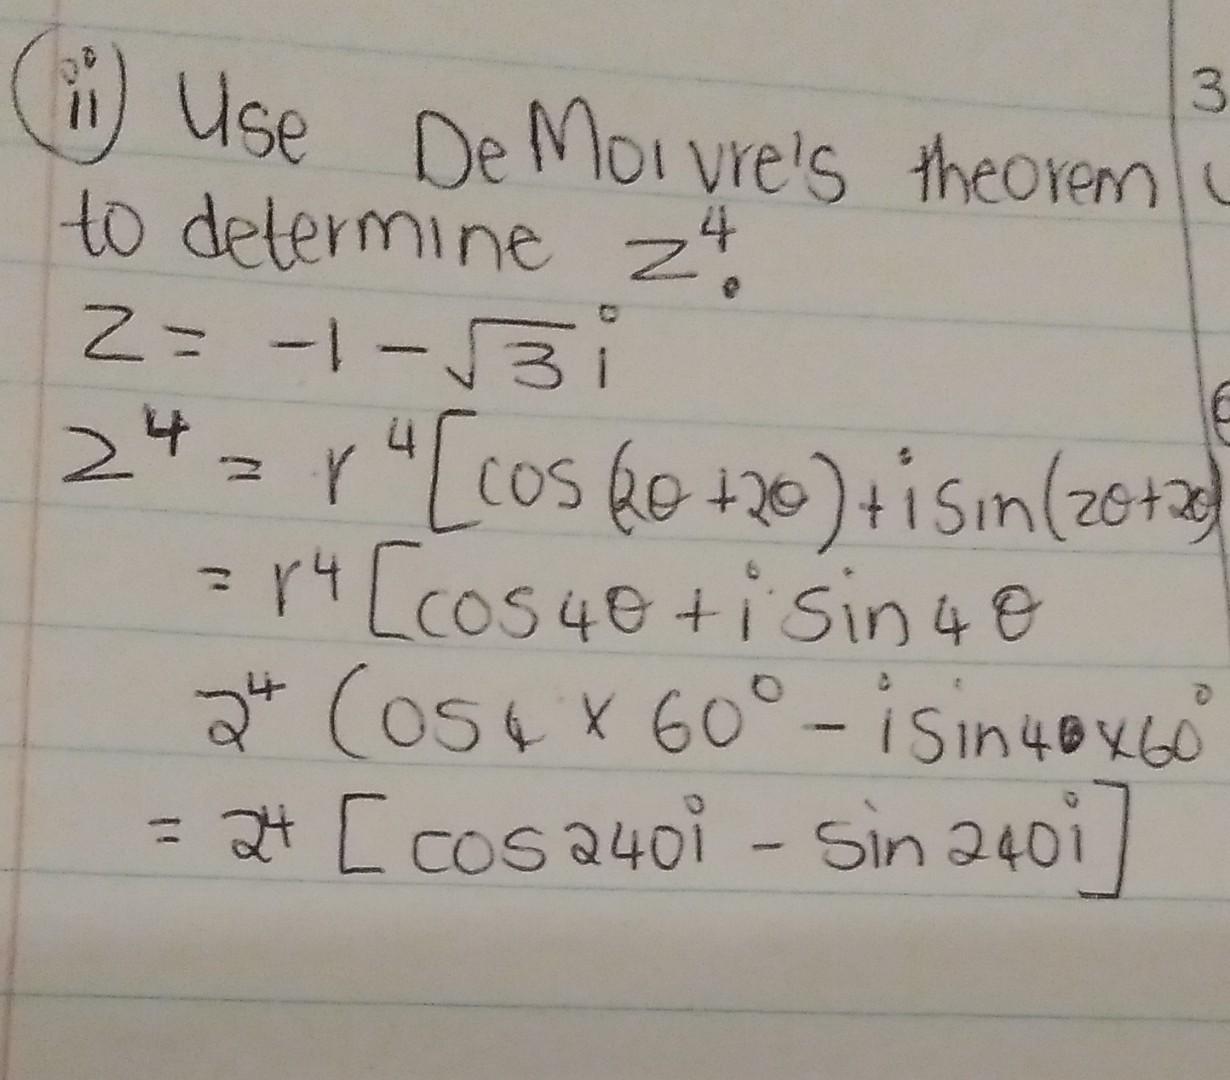 (ii) Use De Moivre's theorem
3
to determine z⁴.
z = -1 - √3 i
z⁴ = r⁴ [cos (2θ + 2θ) + i sin (2θ + 2θ)
= r⁴ [cos 4θ + i sin 4θ
2⁴ (cos 4 × 60° - i sin 4 × 60°
= 2⁴ [cos 240i - sin 240i]